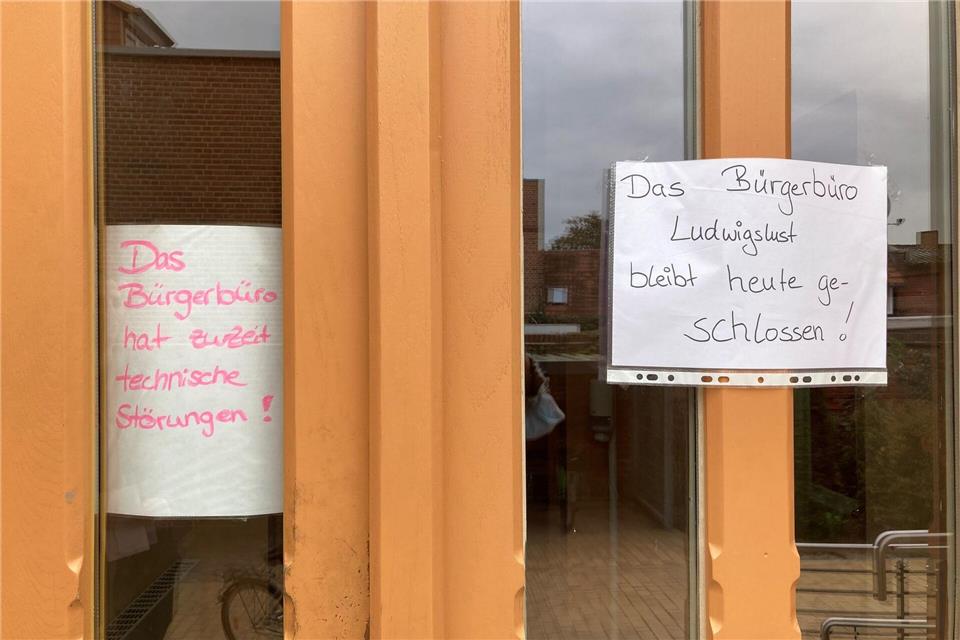 Das
Bürgerbüro
hat zurzeit
technische
Störungen!
Das Bürgerbüro
Ludwigslust
bleibt heute ge-
schlossen!